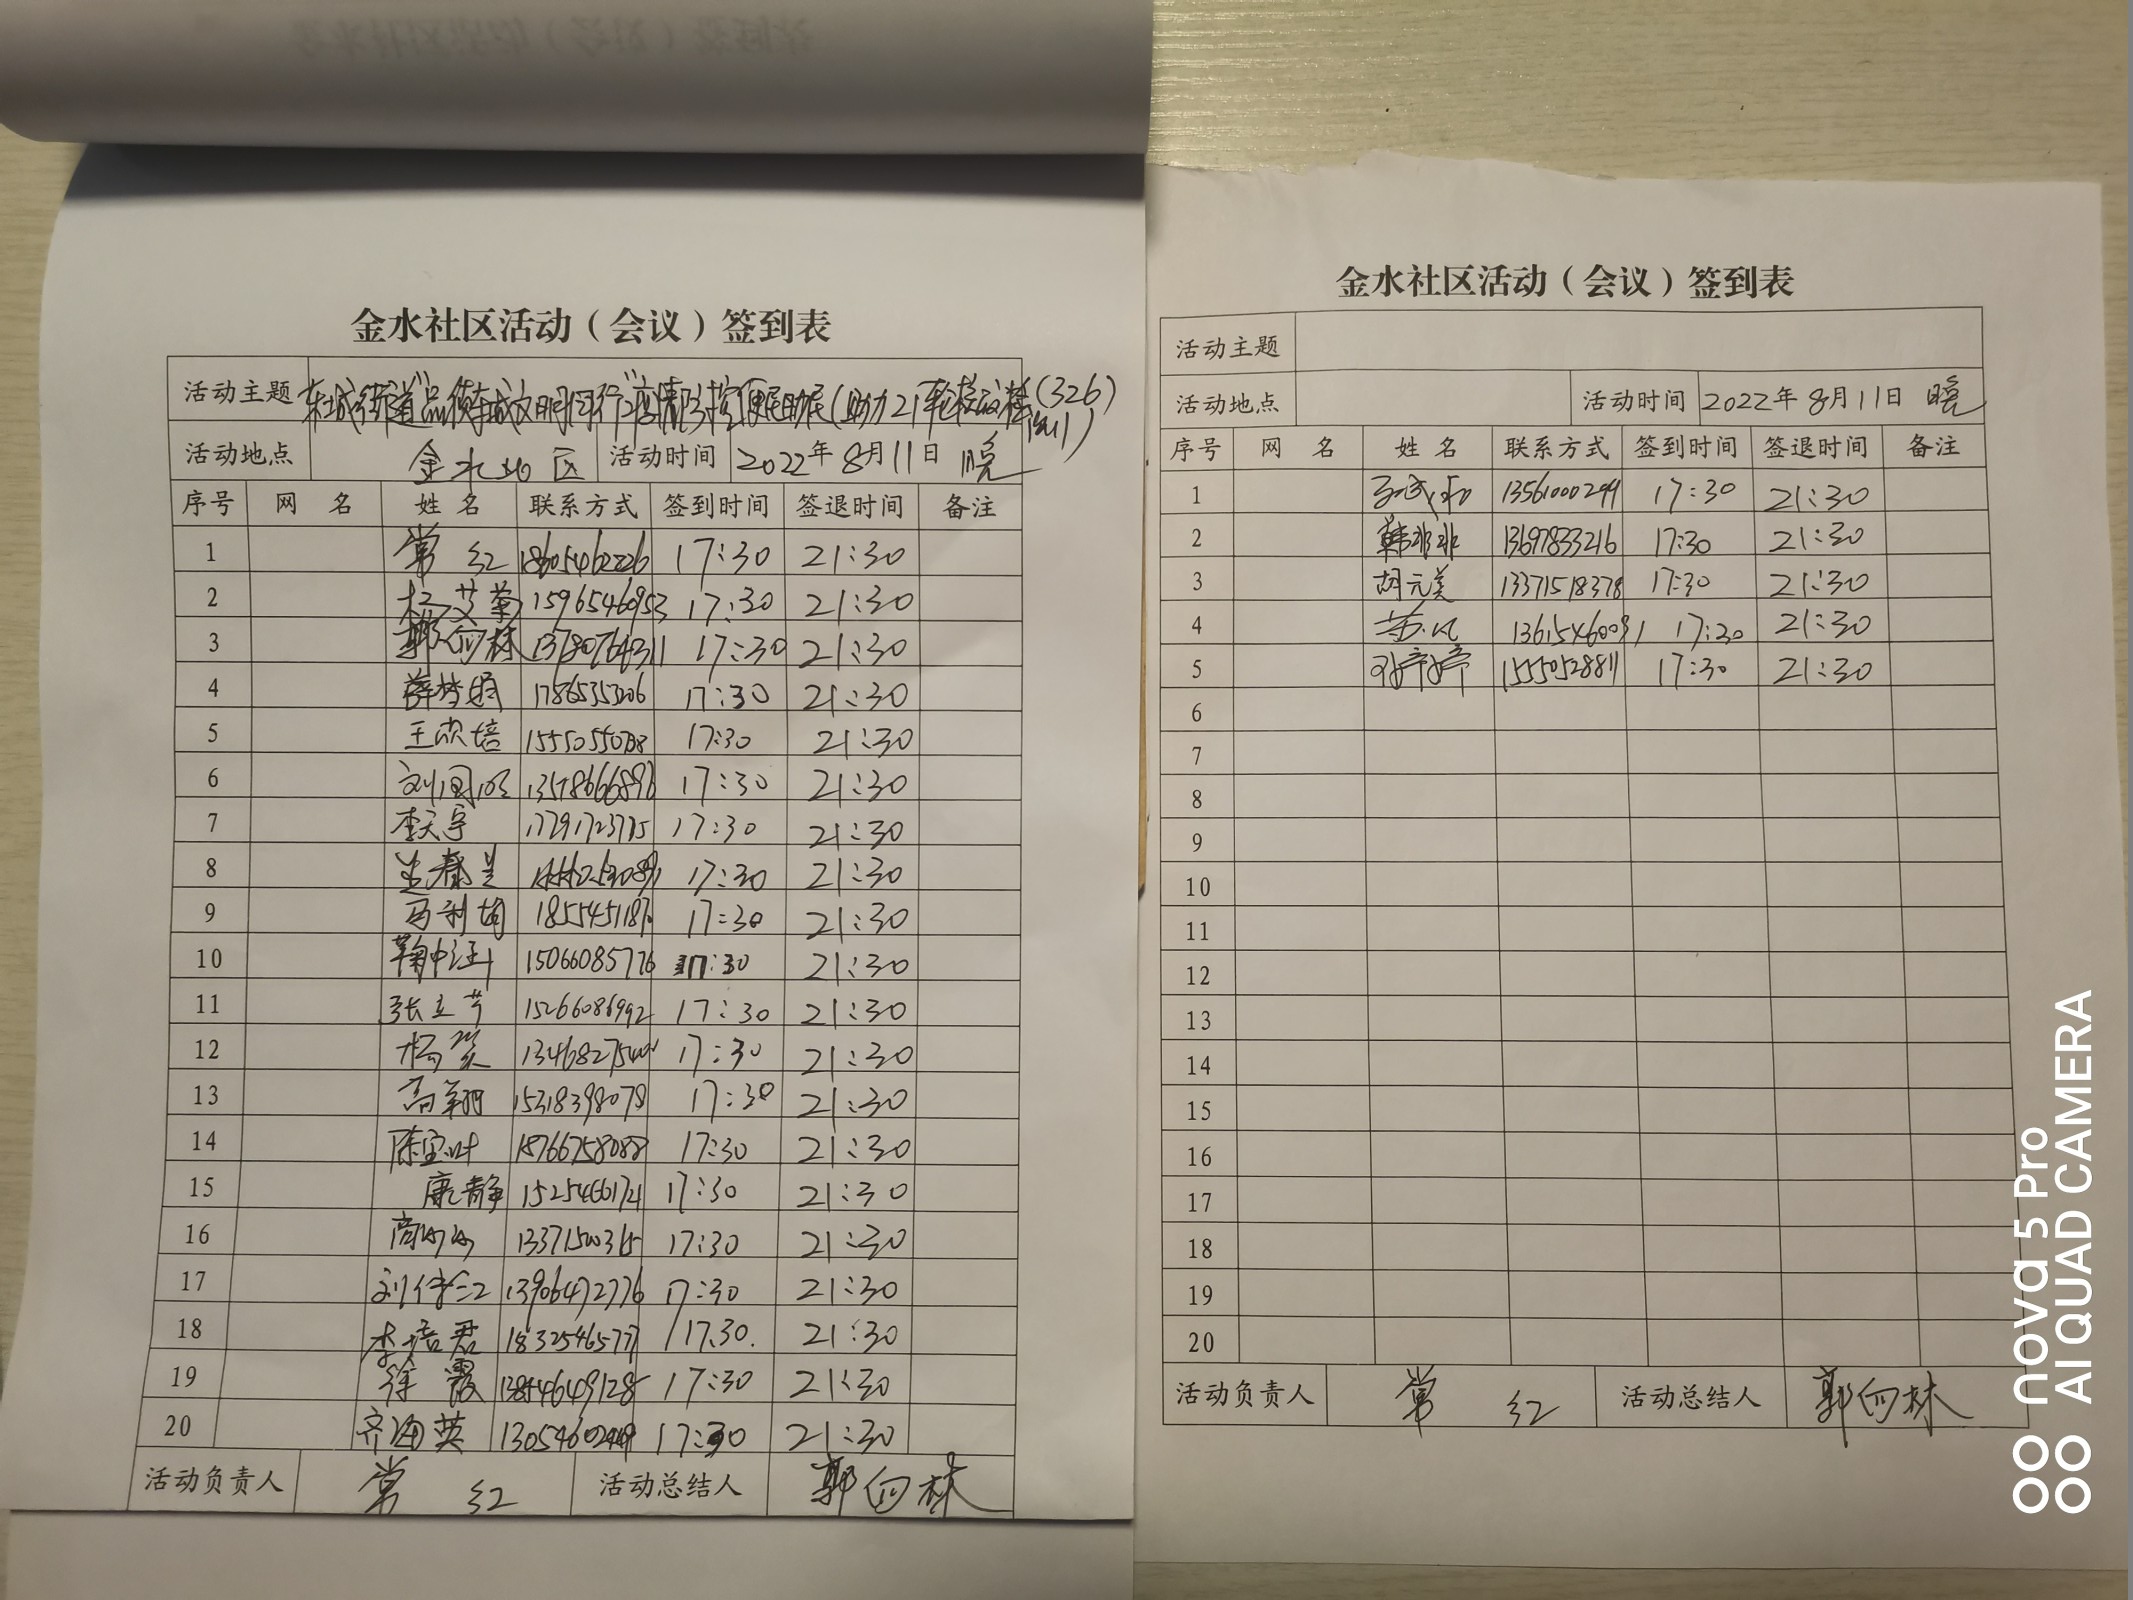 金水社区活动（会议）签到表
活动主题 东城街道"品质东城文明同行"疫情防控便民助民(助力21轮核酸 (326)
活动地点 金水社区 活动时间 2022年8月11日 晚
序号 网 名 姓 名 联系方式 签到时间 签退时间 备注
1 常红 17:30 21:30
2 杨艾菊 15965460953 17:30 21:30
3 郭向林 13780764311 17:30 21:30
4 17865353206 17:30 21:30
5 17:30 21:30
6 17:30 21:30
7 李天宇 17:30 21:30
8 17:30 21:30
9 17:30 21:30
10 15066085776 17:30 21:30
11 张立芹 15266086992 17:30 21:30
12 杨 17:30 21:30
13 高翔 15318398078 17:30 21:30
14 陈宝叶 18766758088 17:30 21:30
15 康静 17:30 21:30
16 17:30 21:30
17 13906472776 17:30 21:30
18 李培君 18325465777 17:30. 21:30
19 徐霞 17:30 21:30
20 齐海英 17:30 21:30
活动负责人 常红 活动总结人 郭向林
金水社区活动（会议）签到表
活动主题
活动地点 活动时间 2022年8月11日 晚
序号 网 名 姓 名 联系方式 签到时间 签退时间 备注
1 13561000299 17:30 21:30
2 韩非非 13697833216 17:30 21:30
3 胡元美 13371518378 17:30 21:30
4 13615460091 17:30 21:30
5 15550528811 17:30 21:30
6
7
8
9
10
11
12
13
14
15
16
17
18
19
20
活动负责人 常红 活动总结人 郭向林
nova 5 Pro
AI QUAD CAMERA